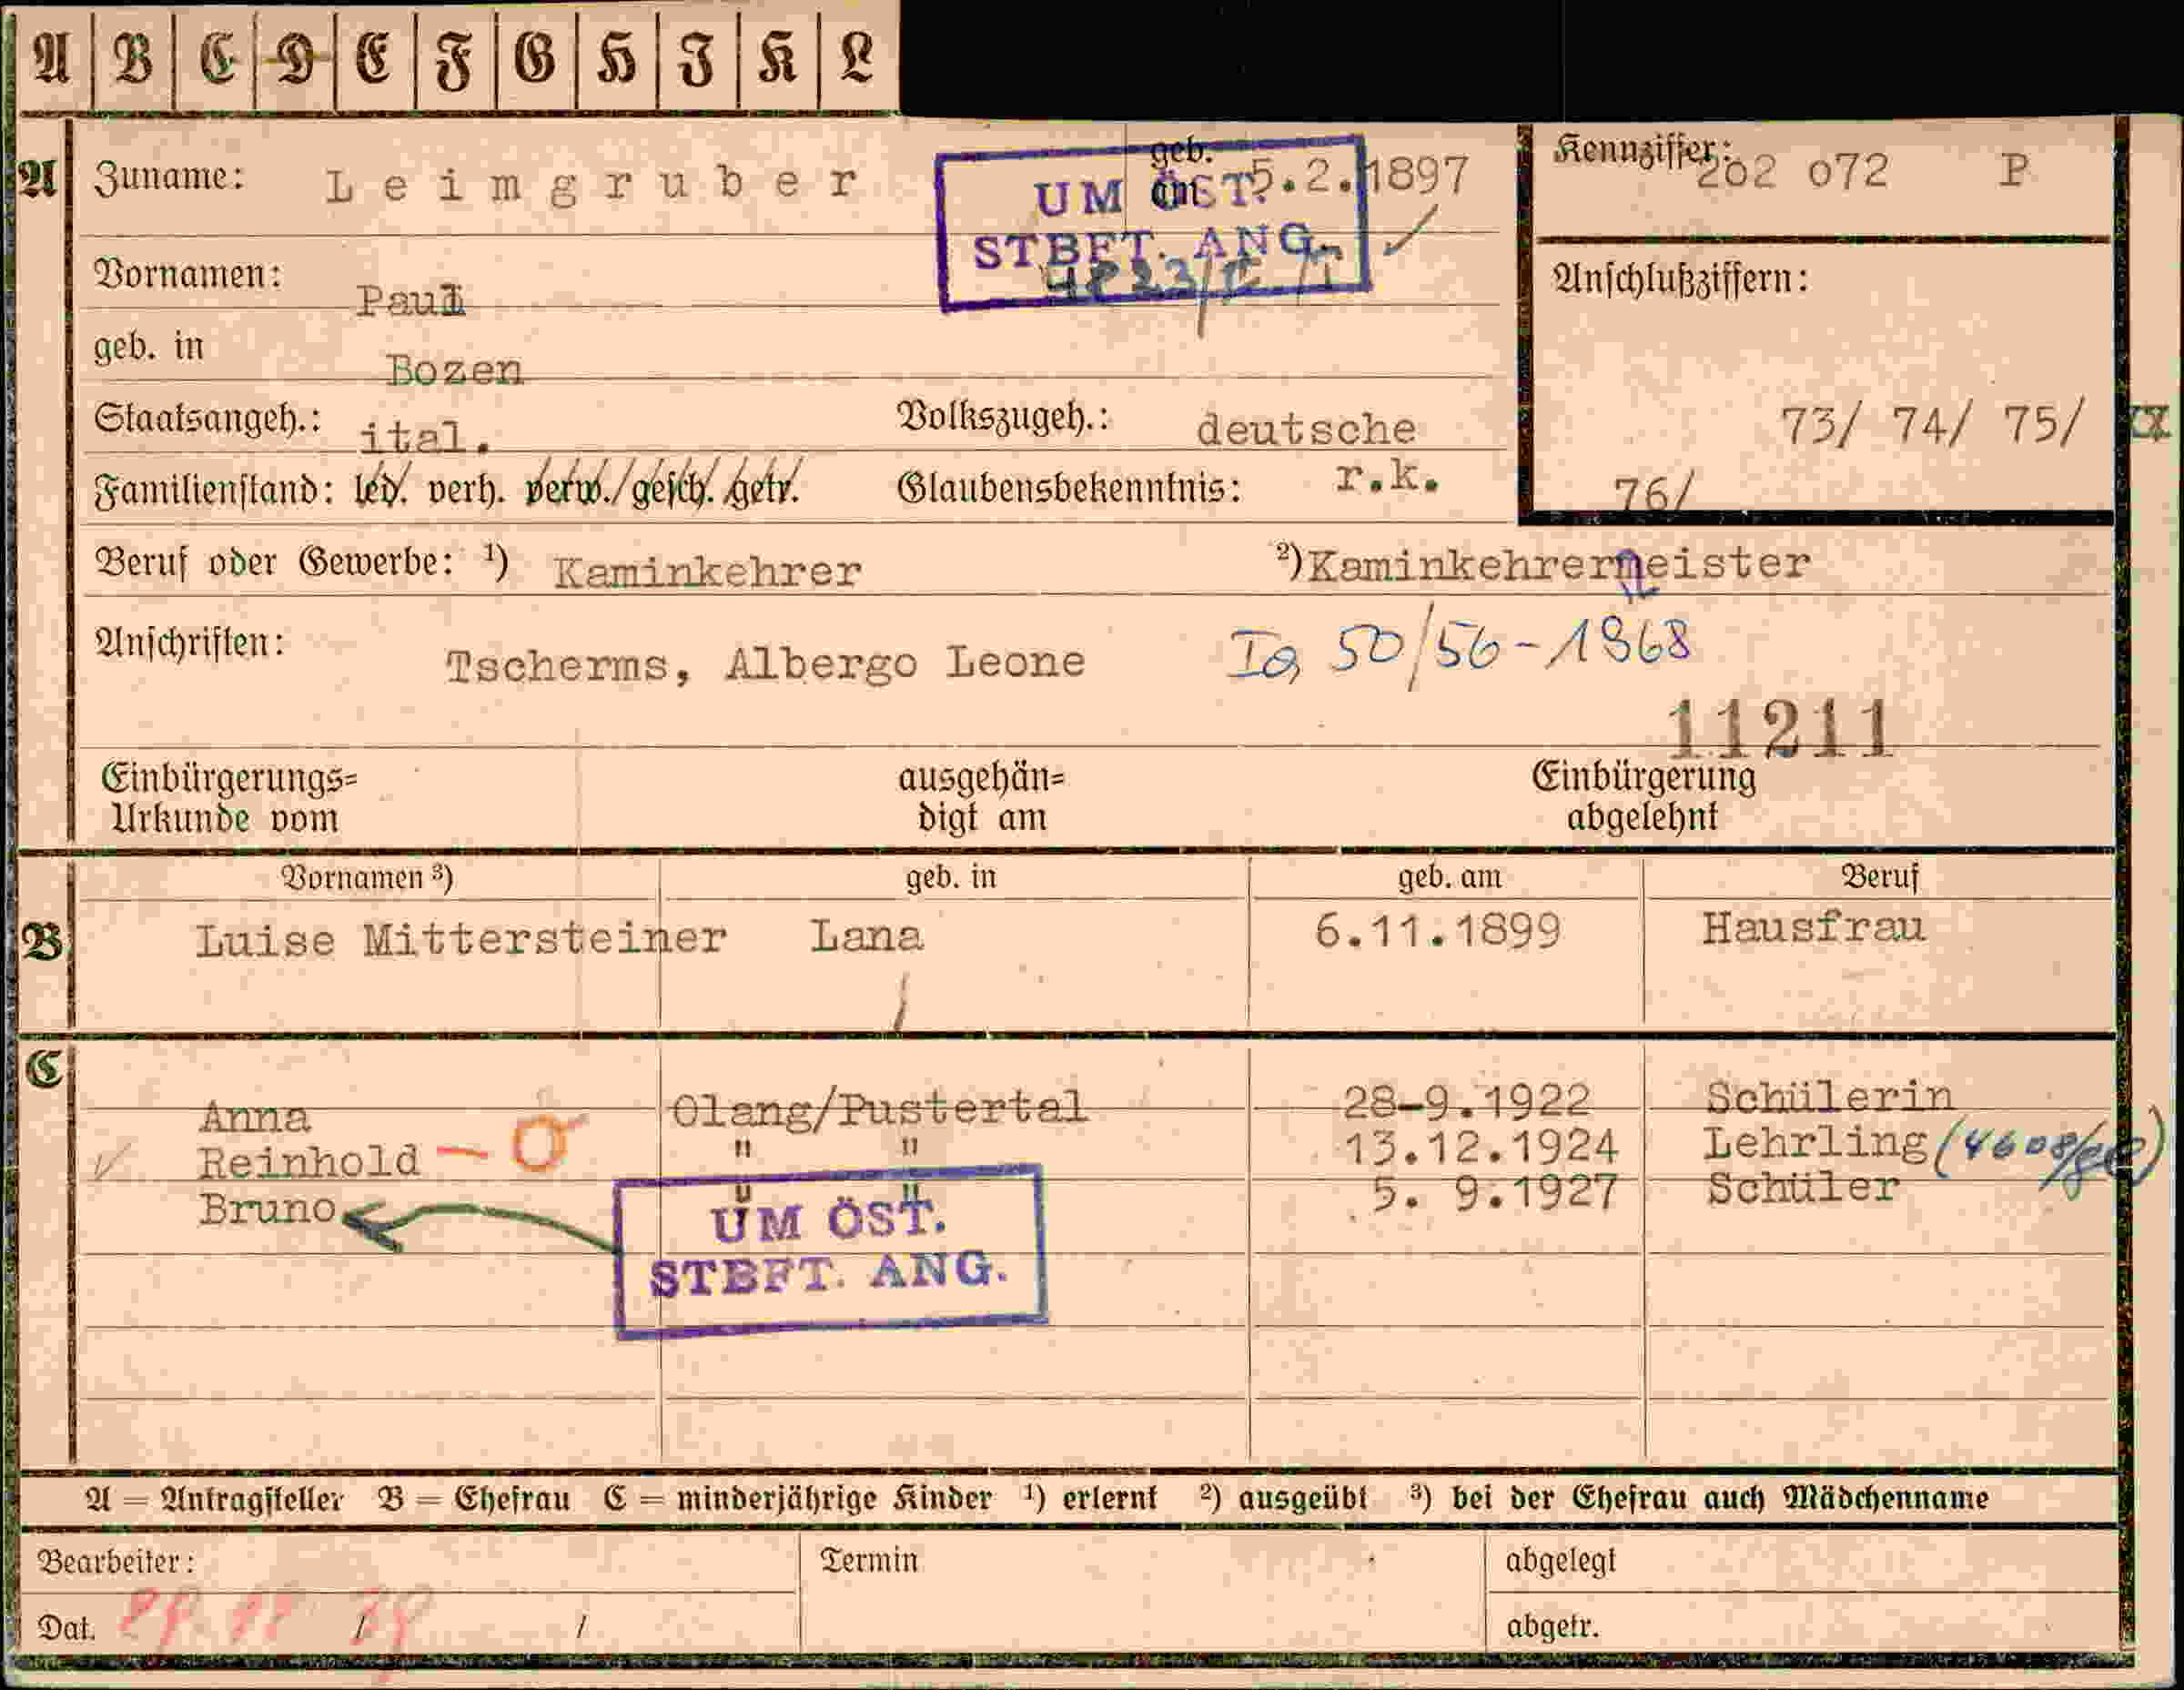 A B C D E F G H I K L
A Zuname: Leimgruber geb. am 5.2.1897 Kennziffer: 202 072 P
UM ÖST.
STBFT. ANG.
Vornamen: Paul Anschlußziffern:
geb. in Bozen
Staatsangeh.: ital. Volkszugeh.: deutsche 73/ 74/ 75/
Familienstand: led. verh. verw./gesch./getr. Glaubensbekenntnis: r.k. 76/
Beruf oder Gewerbe: ¹) Kaminkehrer ²) Kaminkehrermeister
Anschriften: Tscherms, Albergo Leone Ia 50/56-1968
11211
Einbürgerungs= ausgehän= Einbürgerung
Urkunde vom digt am abgelehnt
Vornamen ³) geb. in geb. am Beruf
B Luise Mittersteiner Lana 6.11.1899 Hausfrau
C
Anna Olang/Pustertal 28-9.1922 Schülerin
Reinhold " " 13.12.1924 Lehrling
Bruno " " 5. 9.1927 Schüler
UM ÖST.
STBFT. ANG.
A = Antragsteller B = Ehefrau C = minderjährige Kinder ¹) erlernt ²) ausgeübt ³) bei der Ehefrau auch Mädchenname
Bearbeiter: Termin abgelegt
Dat. / / abgetr.